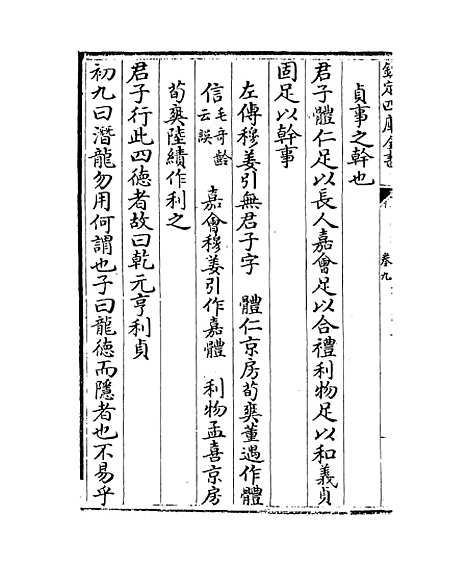 欽定四庫全書
卷九
貞事之幹也
君子體仁足以長人嘉會足以合禮利物足以和義貞
固足以幹事
左傳穆姜引無君子字　體仁京房荀爽董遇作體
信毛奇齡云誤　嘉會穆姜引作嘉體　利物孟喜京房
荀爽陸績作利之
君子行此四德者故曰乾元亨利貞
初九曰潛龍勿用何謂也子曰龍德而隱者也不易乎